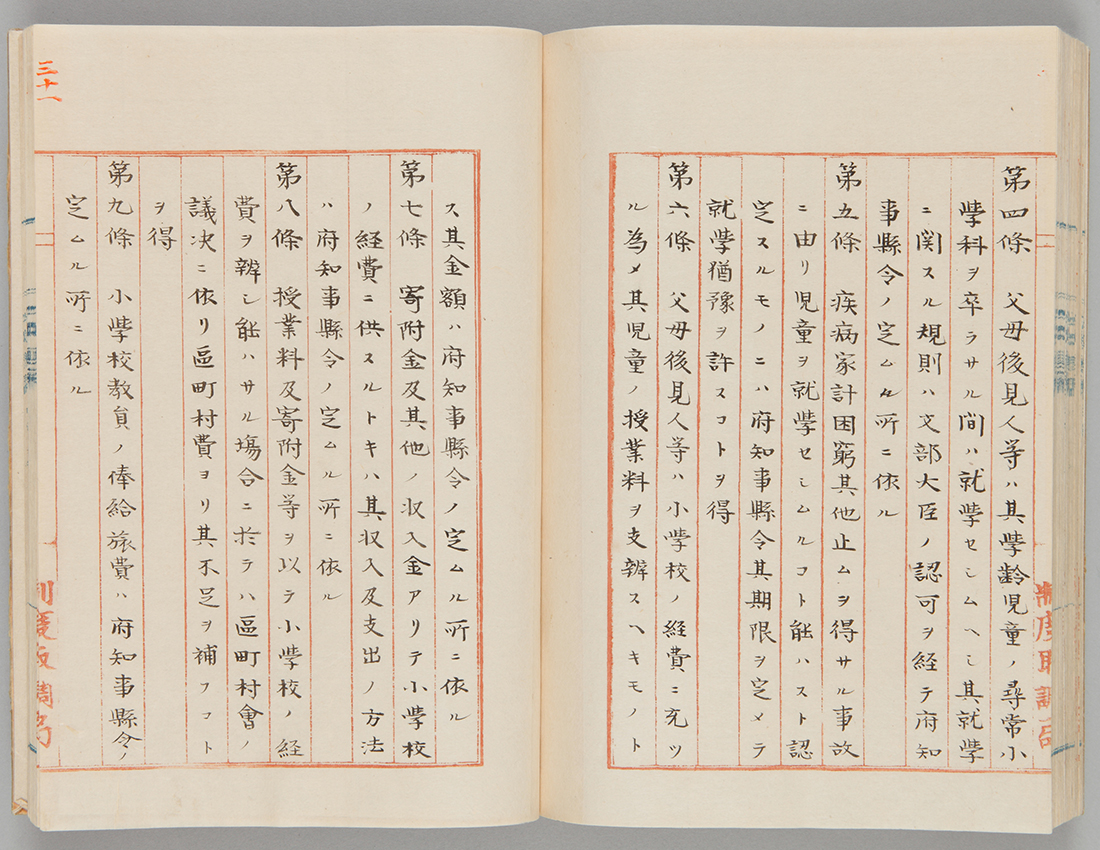 第四條　父母後見人等ハ其學齢児童ノ尋常小
學科ヲ卒ラサル間ハ就學セシムヘシ其就學
ニ関スル規則ハ文部大臣ノ認可ヲ経テ府知
事縣令ノ定ムル所ニ依ル
第五條　疾病家計困窮其他止ムヲ得サル事故
ニ由リ児童ヲ就學セシムルコト能ハスト認
定スルモノニハ府知事縣令其期限ヲ定メテ
就學猶豫ヲ許スコトヲ得
第六條　父母後見人等ハ小學校ノ経費ニ充ツ
ル為メ其児童ノ授業料ヲ支辨スヘキモノト
制度取調局
ス其金額ハ府知事縣令ノ定ムル所ニ依ル
第七條　寄附金及其他ノ収入金アリテ小學校
ノ経費ニ供スルトキハ其収入及支出ノ方法
ハ府知事縣令ノ定ムル所ニ依ル
第八條　授業料及寄附金等ヲ以テ小學校ノ経
費ヲ辨シ能ハサル塲合ニ於テハ區町村會ノ
議决ニ依リ區町村費ヨリ其不足ヲ補フコト
ヲ得
第九條　小學校教員ノ俸給旅費ハ府知事縣令ノ
定ムル所ニ依ル
三十一
制度取調局